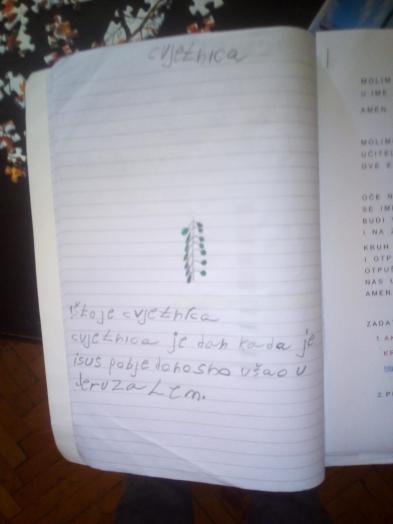 cvjetnica
1. Što je cvjetnica
cvjetnica je dan kada je
isus pobjedonosno ušao u
Jeruzalem.
MOLIM
U IME
AMEN
MOLIM
UČITEL
OVE K
OČE N
SE IME
BUDI
I NA
KRUH
I OTP
OTPUŠ
NAS U
AMEN.
ZADA
1.
2.